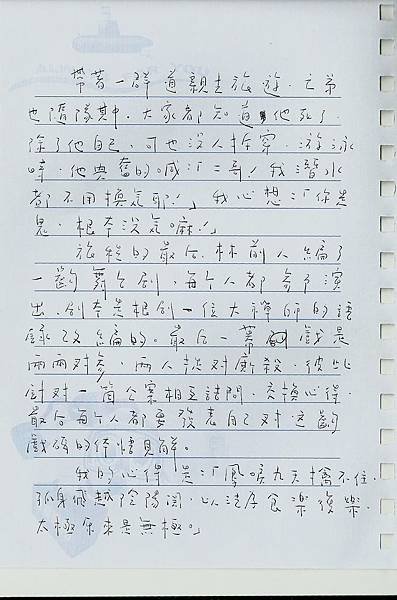 帶著一群道親去旅遊．亡弟
也隨隊其中．大家都知道他死了．
除了他自己．可也沒人拆穿．游泳
時．他興奮的喊：「二哥！我潛水
都不用換氣耶！」我心想：「你是
鬼．根本沒氣嘛！」
旅程的最後．林前人編了
一齣舞台劇．每个人都參予演
出．劇本是根劇一位大禪師的語
錄改編的．最后一幕戲是
兩兩对參．兩人捉对廝殺．彼此
討对一箇公案相互詰問．交換心得．
最后每个人都要發表自己对這齣
戲碼的
我的心得是：「鳳唳九天擒不住．
孤身飛越陰陽河．以法存食樂復樂．
太極原來是無極。」